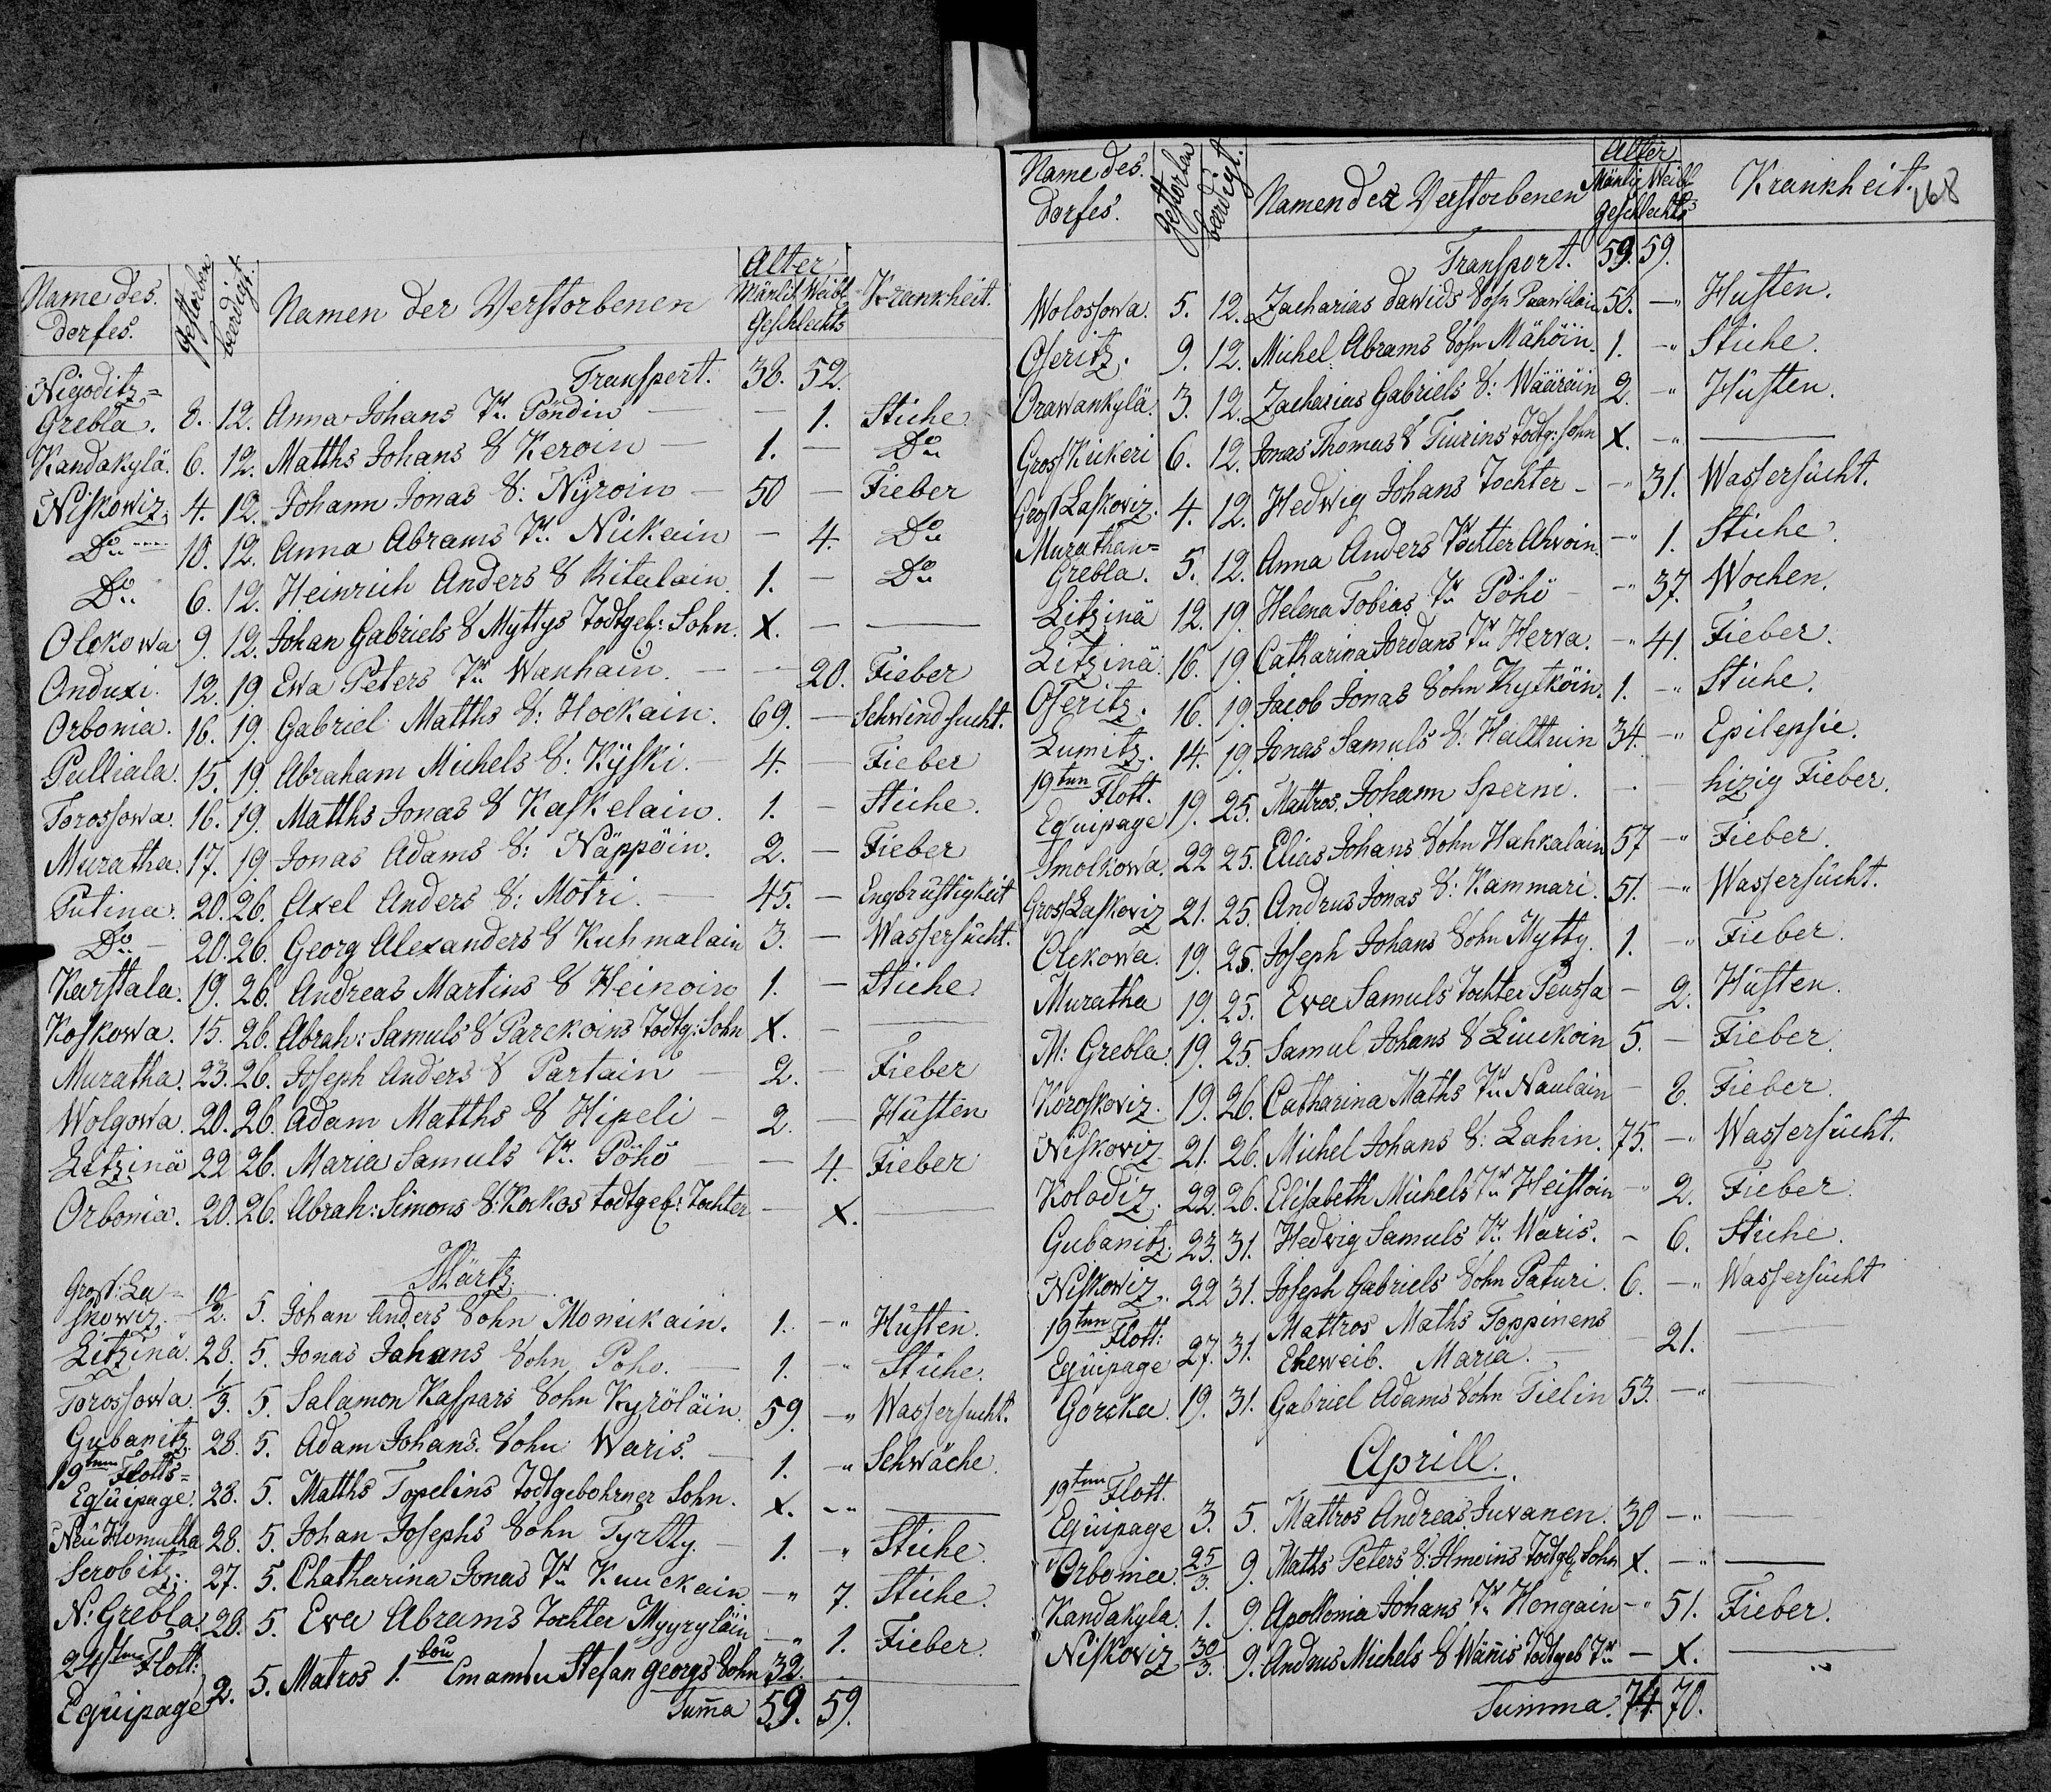 Name des dorfes. gestorben beerdigt. Namen der Verstorbenen Alter Mänlich Weibl. Geschlechts Krankheit.
Transport. 38. 52.
Nigoditz=
Grebla. 8. 12. Anna Johans Tr. Pöndin — 1. Stiche
Kandakylä. 6. 12. Matths Johans S Keroin — 1. — Do
Niskowiz. 4. 12. Johann Jonas S: Nÿroin — 50 — Fieber
Do 10. 12. Anna Abrams Tr. Nickain — 4. Do
Do 6. 12. Heinrich Anders S Ritalain. 1. — Do
Olekowa 9. 12. Johan Gabriels S Myttys Todtgeb: Sohn. X. — —
Onduxi. 12. 19. Ewa Peters Tr. Wanhain. — 20. Fieber
Orbonia. 16. 19. Gabriel Matths S: Hockain. 69. — Schwindsucht.
Pulliala. 15. 19. Abraham Michels S: Kÿski. — 4. — Fieber
Torossowa. 16. 19. Matths Jonas S Kaskelain. 1. — Stiche.
Muratha. 17. 19. Jonas Adams S: Näppöin. 2. — Fieber
Putina. 20. 26. Axel Anders S: Motri. — 45. — Engbrüstigkeit
Do — 20. 26. Georg Alexanders S Kuhmalain 3. — Wassersucht.
Karstala. 19. 26. Andreas Martins S Heinoin 1. — Stiche.
Koskowa. 15. 26. Abrah: Samuls S Parckoins Todtg: Sohn X. — —
Muratha. 23. 26. Joseph Anders S Partain — 2. — Fieber
Wolgowa. 20. 26. Adam Matths S Hipeli — 2. — Husten
Litzinä 22 26. Maria Samuls Tr. Pöhö — 4. Fieber
Orbonia. 20. 26. Abrah: Simons S: Kockos todtgeb: Tochter — X. —
Märtz.
Gross: La=
skowiz. 19/2. 5. Johan Anders Sohn Monickain. 1. —" Husten.
Litzinä. 28. 5. Jonas Johans Sohn Poho. — 1. —" Stiche.
Torossowa. 1/3. 5. Salamon Kaspars Sohn Kyröläin. 59. —" Wassersucht.
Gubanitz. 28. 5. Adam Johans Sohn Waris. — 1. —" Schwäche.
19ten Flotts=
Equipage. 28. 5. Matths Topelins Todtgebohrner Sohn. X. —" —
Neu Homutha 28. 5. Johan Josephs Sohn Tyrtty. — 1. —" Stiche.
Serobitz. 27. 5. Chatharina Jonas Tr. Kuuckain —" 7. Stiche.
N: Grebla. 28. 5. Eva Abrams Tochter Myyryläin —" 1. Fieber.
24sten Flott:
Equipage 2. 5. Matros 1. Stefan Georgs Sohn 32.
Summa 59. 59.
Name des dorfes. Gestorben beerdigt. Namen der Verstorbenen Alter Mänli Weibl Geschlechts Krankheit. 168
Transport. 59. 59.
Wolossowa. 5. 12. Zacharias Dawids Sohn Paawilain 58. —" Husten.
Oseritz. 9. 12. Michel Abrams Sohn Mähöin. 1. —" Stiche.
Orawankylä. 3. 12. Zacharias Gabriels S: Wääräin 2. —" Husten.
Gross Kickeri 6. 12. Jonas Thomas S Tiurins Todtg: Sohn X. —" —
Gross Laskoviz. 4. 12. Hedwig Johans Tochter — —" 31. Wassersucht.
Murathan=
Grebla. 5. 12. Anna Anders Tochter Ahvoin. —" 1. Stiche.
Litzinä 12. 19. Helena Tobias Tr. Pöhö — —" 37. Wochen.
Litzinä. 16. 19. Catharina Jordans Tr. Herva. —" 41. Fieber.
Oseritz. 16. 19. Jacob Jonas Sohn Kytköin. 1. —" Stiche.
Lumitz. 14. 19. Jonas Samuls S: Halttuin 34. —" Epilepsie.
19ten Flott.
Equipage 19. 25. Mattros. Johann Sperni. hizig Fieber.
Smolkowa. 22 25. Elias Johans Sohn Hahkalain 57 —" Fieber.
Gross Laskoviz 21. 25. Andrus Jonas S: Kammari. 51. —" Wassersucht.
Olekowa. 19. 25. Joseph Johans Sohn Mytty. 1. —" Fieber.
Muratha 19. 25. Eva Samuls Tochter Peussa — 2. Husten.
M: Grebla. 19. 25. Samul Johans S Liuckoin 5. — Fieber.
Koroskoviz. 19. 26. Catharina Maths Tr. Naulain — 2. Fieber.
Niskoviz. 21. 26. Michel Johans S: Lahin. 75. —" Wassersucht.
Kolodiz. 22. 26. Elisabeth Michels Tr. Heistoin —" 2. Fieber.
Gubanitz. 23. 31. Hedwig Samuls Tr. Waris. — 6. Stiche.
Niskowiz. 22 31. Joseph Gabriels Sohn Paturi. 6. —" Wassersucht
19ten Flott:
Equipage 27. 31. Mattros Maths Toppinens
Eheweib. Maria. — 21. —
Gorcka. 19. 31. Gabriel Adams Sohn Tielin 53. —" —
Aprill.
19ten Flott.
Equipage 3. 5. Mattros Andreas Juvanen. 30 —" —
Orbonia. 25/3. 9. Maths Peters S: Ilmoins Todtgb Sohn X. —" —
Kandakyla. 1. 9. Apollonia Johans Tr. Hongain —" 51. Fieber.
Niskoviz 30/3. 9. Andrus Michels S Wännis Todtgeb Tr. — X. —
Summa. 74. 70.